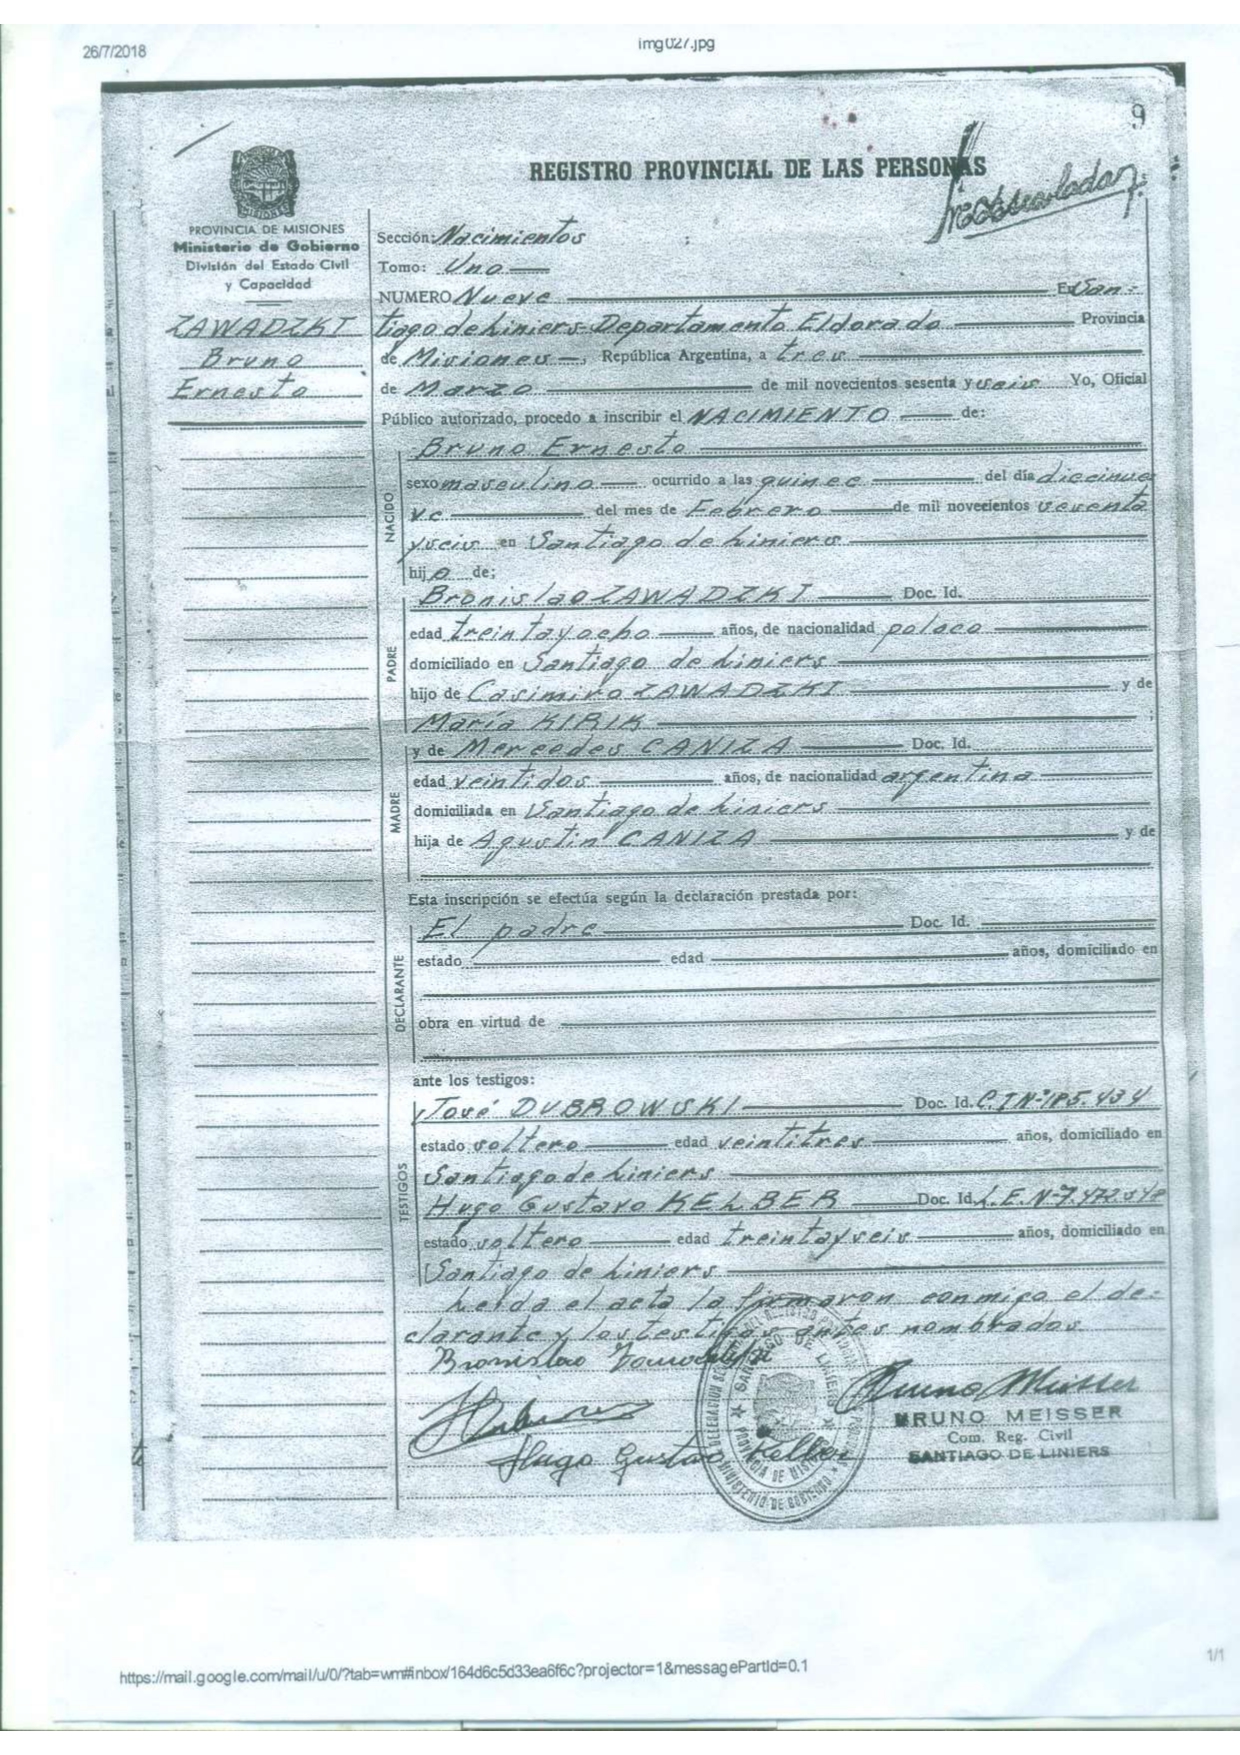 26/7/2018
img027.jpg
9
REGISTRO PROVINCIAL DE LAS PERSONAS
MISIONES
PROVINCIA DE MISIONES
Ministerio de Gobierno
División del Estado Civil
y Capacidad
ZAWADZKI
Bruno
Ernesto
Sección: Nacimientos
Tomo: Uno
NUMERO Nueve En San-
tiago de Liniers-Departamento Eldorado Provincia
de Misiones, República Argentina, a tres
de Marzo de mil novecientos sesenta y seis Yo, Oficial
Público autorizado, procedo a inscribir el NACIMIENTO de:
NACIDO
Bruno Ernesto
sexo masculino ocurrido a las quince del día diecinue
ve del mes de Febrero de mil novecientos sesenta
y seis en Santiago de Liniers
hijo de;
PADRE
Bronislao ZAWADZKI Doc. Id.
edad treinta y ocho años, de nacionalidad polaca
domiciliado en Santiago de Liniers
hijo de Casimiro ZAWADZKI y de
María KIRIK ;
MADRE
y de Mercedes CANIZA Doc. Id.
edad veintidos años, de nacionalidad argentina
domiciliada en Santiago de Liniers
hija de Agustin CANIZA y de
Esta inscripción se efectúa según la declaración prestada por:
DECLARANTE
El padre Doc. Id.
estado edad años, domiciliado en
obra en virtud de
ante los testigos:
TESTIGOS
José DUBROWSKI Doc. Id. C.I Nº 185.434
estado soltero edad veintitres años, domiciliado en
Santiago de Liniers
Hugo Gustavo KELBER Doc. Id. L.E. Nº 7.472.
estado soltero edad treinta y seis años, domiciliado en
Santiago de Liniers
Leída el acta la firmaron conmigo el de-
clarante y los testigos antes nombrados
Bronislao
Hugo Gustavo Kelber
Bruno Meisser
BRUNO MEISSER
Com. Reg. Civil
SANTIAGO DE LINIERS
https://mail.google.com/mail/u/0/?tab=wm#inbox/164d6c5d33ea6f6c?projector=1&messagePartId=0.1
1/1